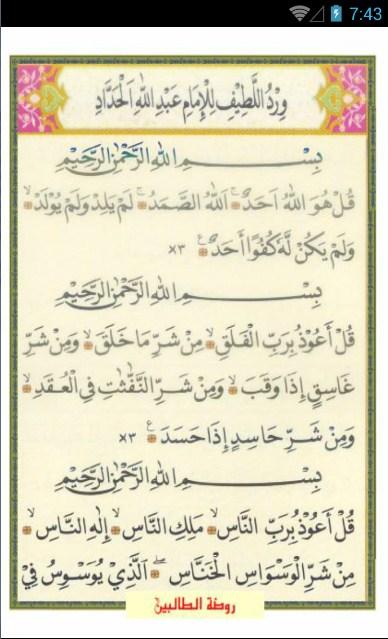 7:43
وِرْدُ اللَّطِيْفِ لِلْإِمَامِ عَبْدِ اللهِ الْحَدَّادِ
بِسْمِ اللهِ الرَّحْمٰنِ الرَّحِيْمِ
قُلْ هُوَ اللهُ اَحَدٌ ۚ اَللهُ الصَّمَدُ ۚ لَمْ يَلِدْ وَلَمْ يُوْلَدْ ۙ
وَلَمْ يَكُنْ لَّهٗ كُفُوًا اَحَدٌ ࣖ ×٣
بِسْمِ اللهِ الرَّحْمٰنِ الرَّحِيْمِ
قُلْ اَعُوْذُ بِرَبِّ الْفَلَقِ ۙ مِنْ شَرِّ مَا خَلَقَ ۙ وَمِنْ شَرِّ
غَاسِقٍ اِذَا وَقَبَ ۙ وَمِنْ شَرِّ النَّفّٰثٰتِ فِي الْعُقَدِ ۙ
وَمِنْ شَرِّ حَاسِدٍ اِذَا حَسَدَ ࣖ ×٣
بِسْمِ اللهِ الرَّحْمٰنِ الرَّحِيْمِ
قُلْ اَعُوْذُ بِرَبِّ النَّاسِ ۙ مَلِكِ النَّاسِ ۙ اِلٰهِ النَّاسِ ۙ
مِنْ شَرِّ الْوَسْوَاسِ الْخَنَّاسِ ۖ الَّذِيْ يُوَسْوِسُ فِيْ
روضة الطالبين